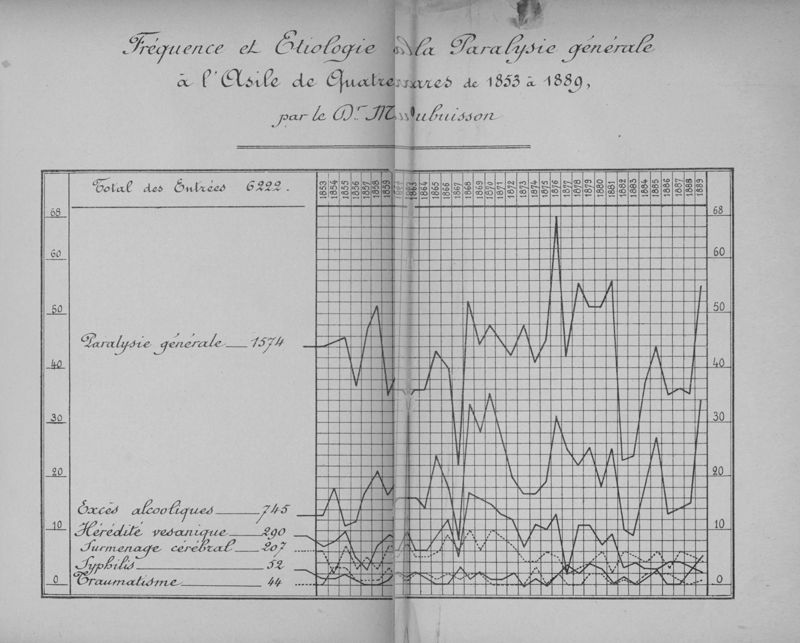 Fréquence et Etiologie de la Paralysie générale
à l'Asile de Quatremares de 1853 à 1889,
par le Dr
Total des Entrées 6222.
1853 1854 1855 1856 1857 1858 1859 1863 1864 1865 1866 1867 1868 1869 1870 1871 1872 1873 1874 1875 1876 1877 1878 1879 1880 1881 1882 1883 1884 1885 1886 1887 1888 1889
68 68
60 60
50 50
Paralysie générale 1574
40 40
30 30
20 20
Excès alcooliques 745
10 10
Hérédité vesanique 290
Surmenage cérébral 207
Syphilis 52
0 Traumatisme 44 0